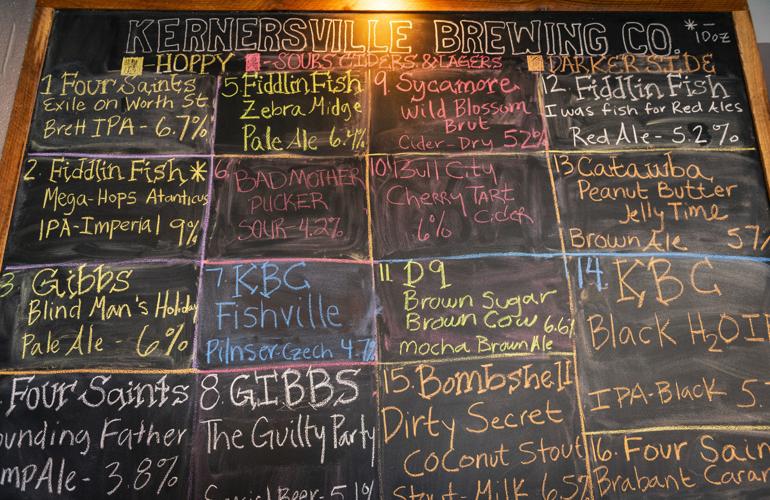 KERNERSVILLE BREWING CO.
*- 10oz
- HOPPY - SOURS CIDERS & LAGERS - DARKER SIDE
1 Four Saints
Exile on Worth St.
Brett IPA - 6.7%
2. Fiddlin Fish *
Mega-Hops Atanticus
IPA-Imperial 9%
3. Gibbs
Blind Man's Holiday
Pale Ale - 6%
Four Saints
ounding Father
mpAle - 3.8%
5. Fiddlin Fish
Zebra Midge
Pale Ale 6.4%
6. BAD MOTHER
PUCKER
SOUR - 4.2%
7. KBC
Fishville
Pilnser-Czech 4.7%
8. GIBBS
The Guilty Party
Special Beer - 5.1%
9. Sycamore
Wild Blossom
Brut
Cider-Dry 52%
10. Bull City
Cherry Tart
6% Cider
11. D9
Brown Sugar
Brown Cow 6.6%
mocha Brown Ale
15. Bombshell
Dirty Secret
Coconut Stout
Stout - Milk 6.5%
2. Fiddlin Fish
I was fish for Red Ales
Red Ale - 5.2%
13 Catawba
Peanut Butter
Jelly Time
Brown Ale 57
14. KBC
Black H2OI
IPA-Black 5.
16. Four Sain
Brabant Caran